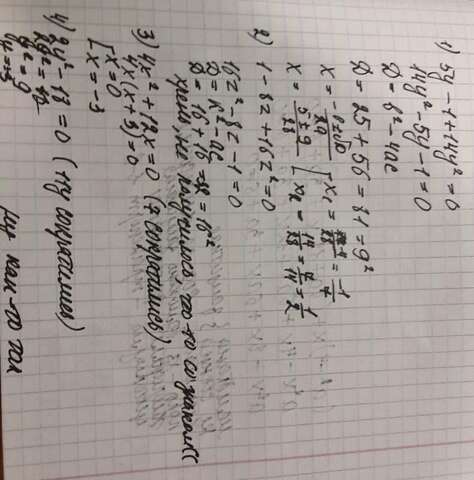 1) 5y - 1 + 14y² = 0
14y² - 5y - 1 = 0
D = b² - 4ac
D = 25 + 56 = 81 = 9²
x = (-b ± √D)/2a
x = (5 ± 9)/28 [ x₁ = -4/28 = -1/7
x₂ = 14/28 = 7/14 = 1/2
2) 1 - 8z + 16z² = 0
16z² - 8z - 1 = 0
D = k² - ac
D = 16 + 16 =
не получилось, что-то со знаками ((
3) 4x² + 12x = 0
4x(x + 3) = 0
[ x = 0
x = -3
4) 2y² - 17 = 0 (ну сократила)
y² = 9
ну как-то так